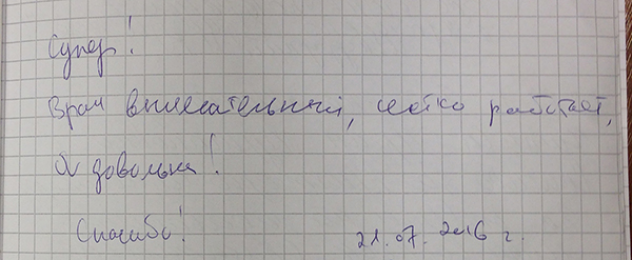 Супер!
Врач внимательный, четко работает,
Я довольна!
Спасибо! 21.07.2016 г.